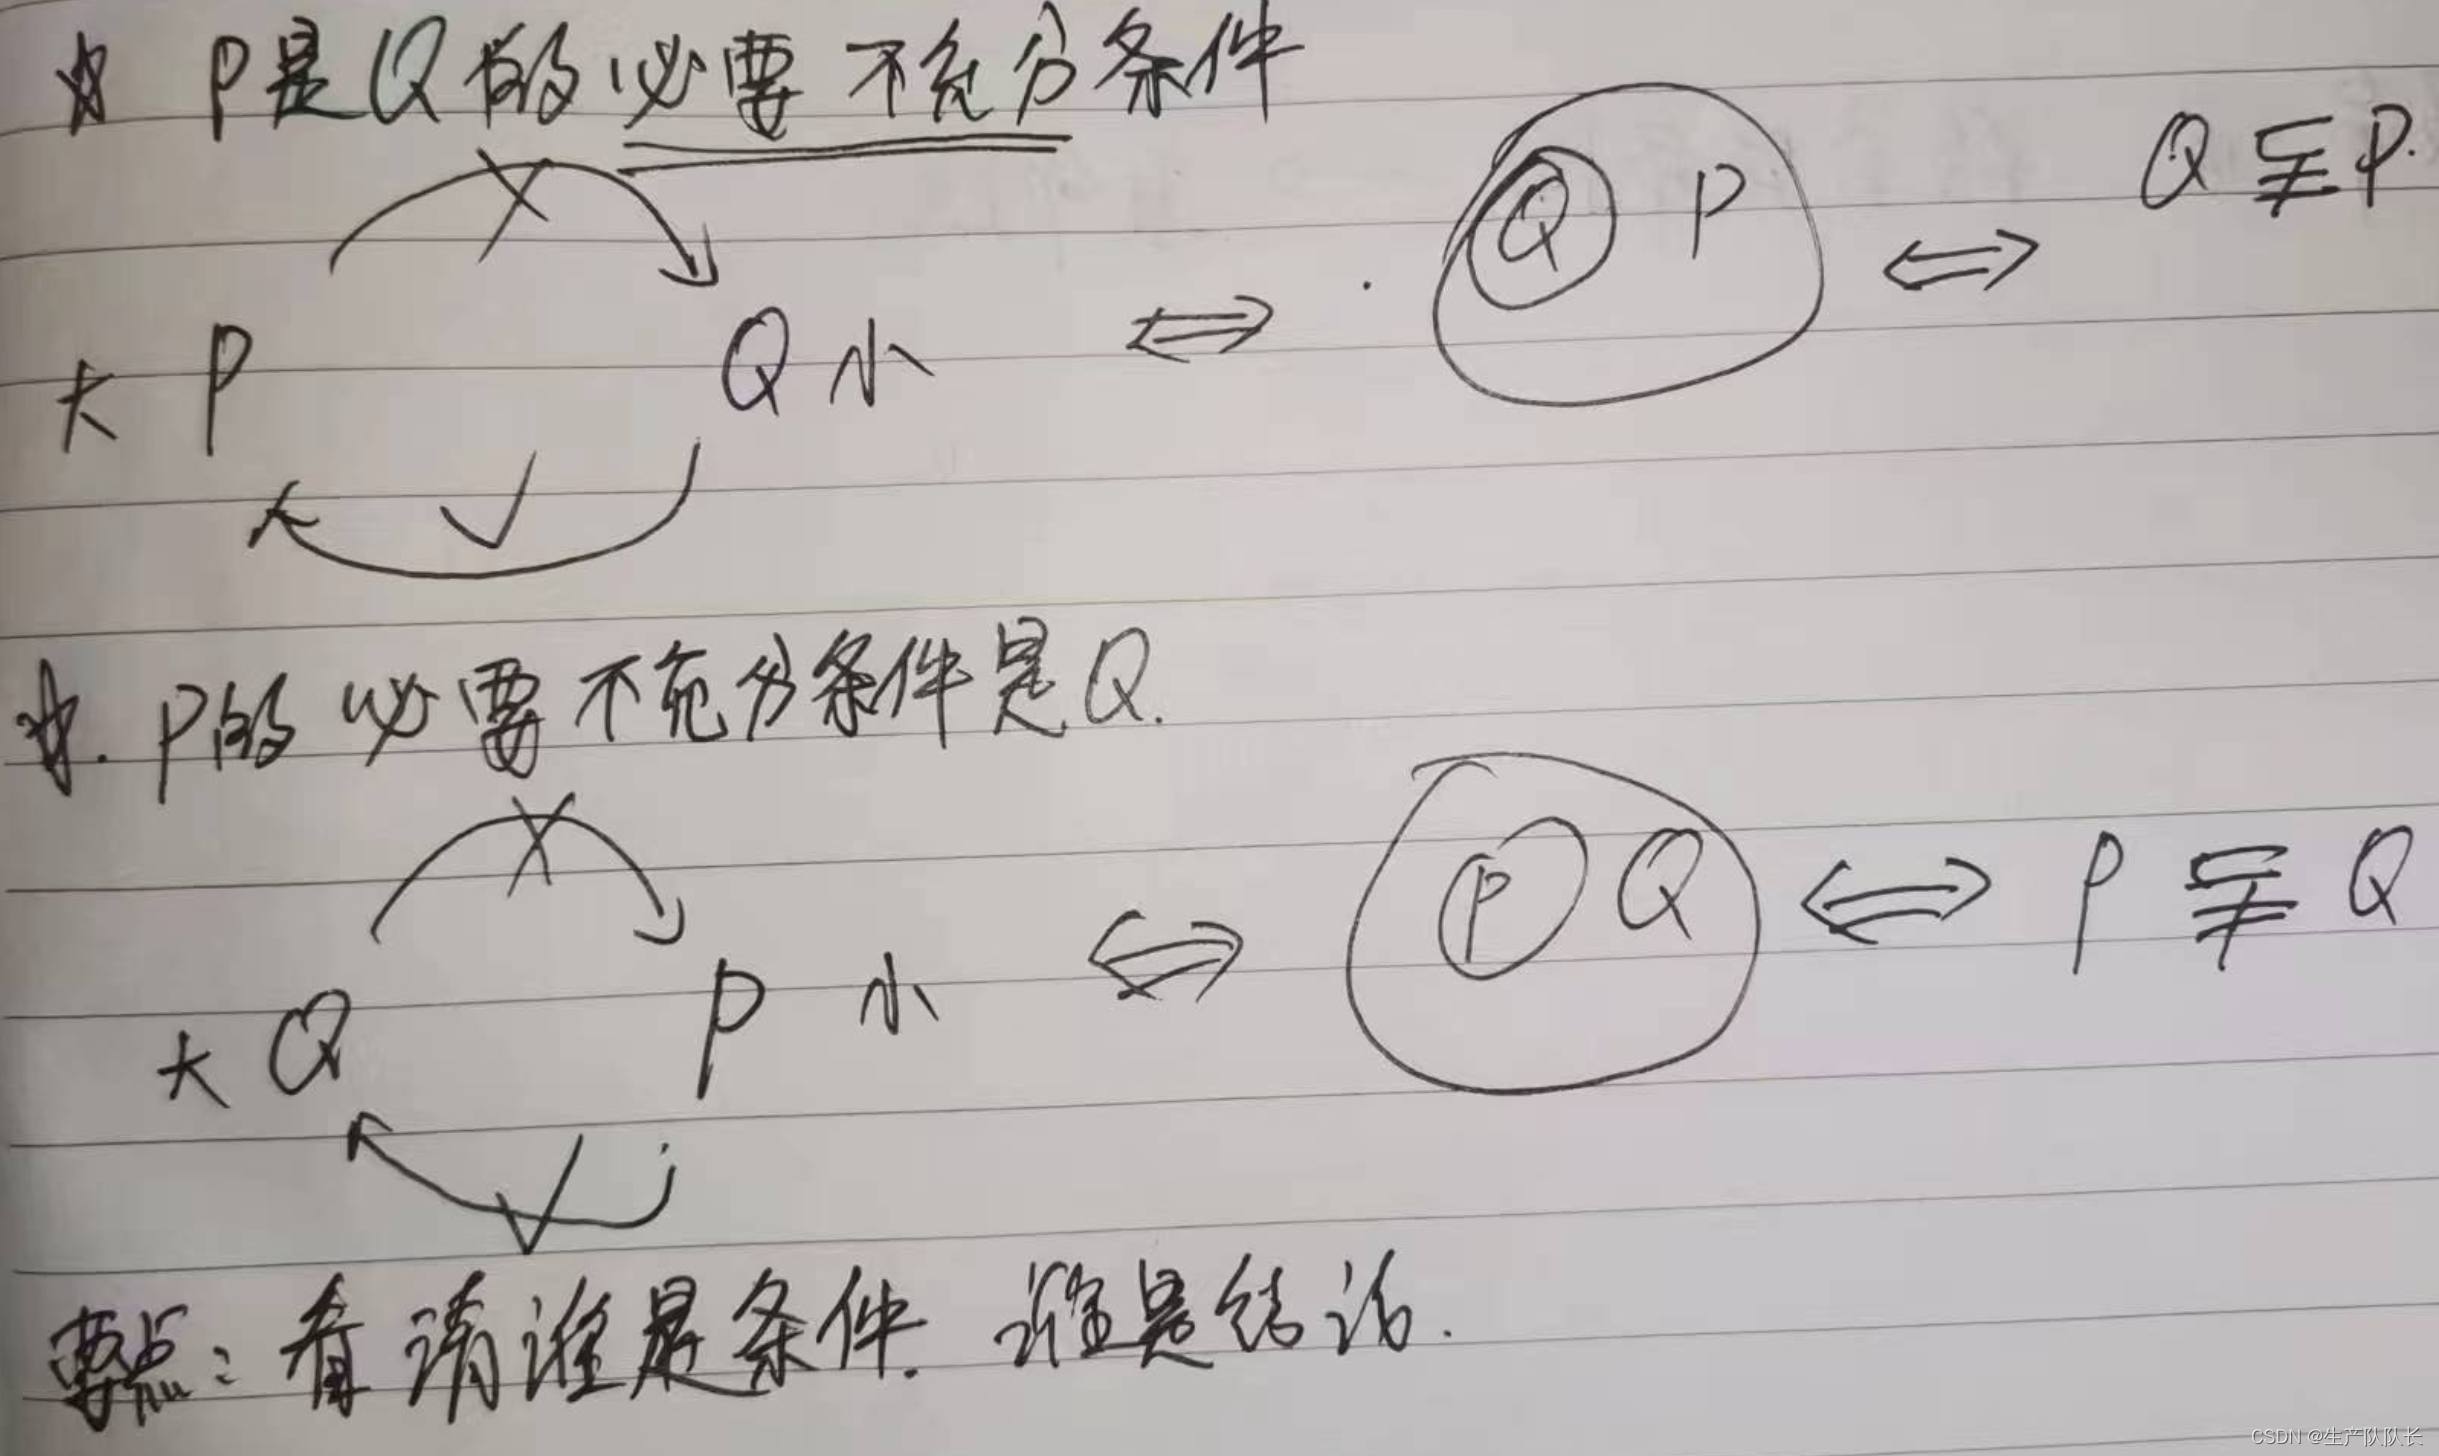 ☆ P是Q的必要不充分条件
Q ⫋ P.
Q P
大 P Q 小 ⇔ ⇔
☆. P的必要不充分条件是Q.
P Q ⇔ P ⫋ Q
大 Q P 小 ⇔
要点：看请谁是条件. 谁是结论.
CSDN @生产队队长